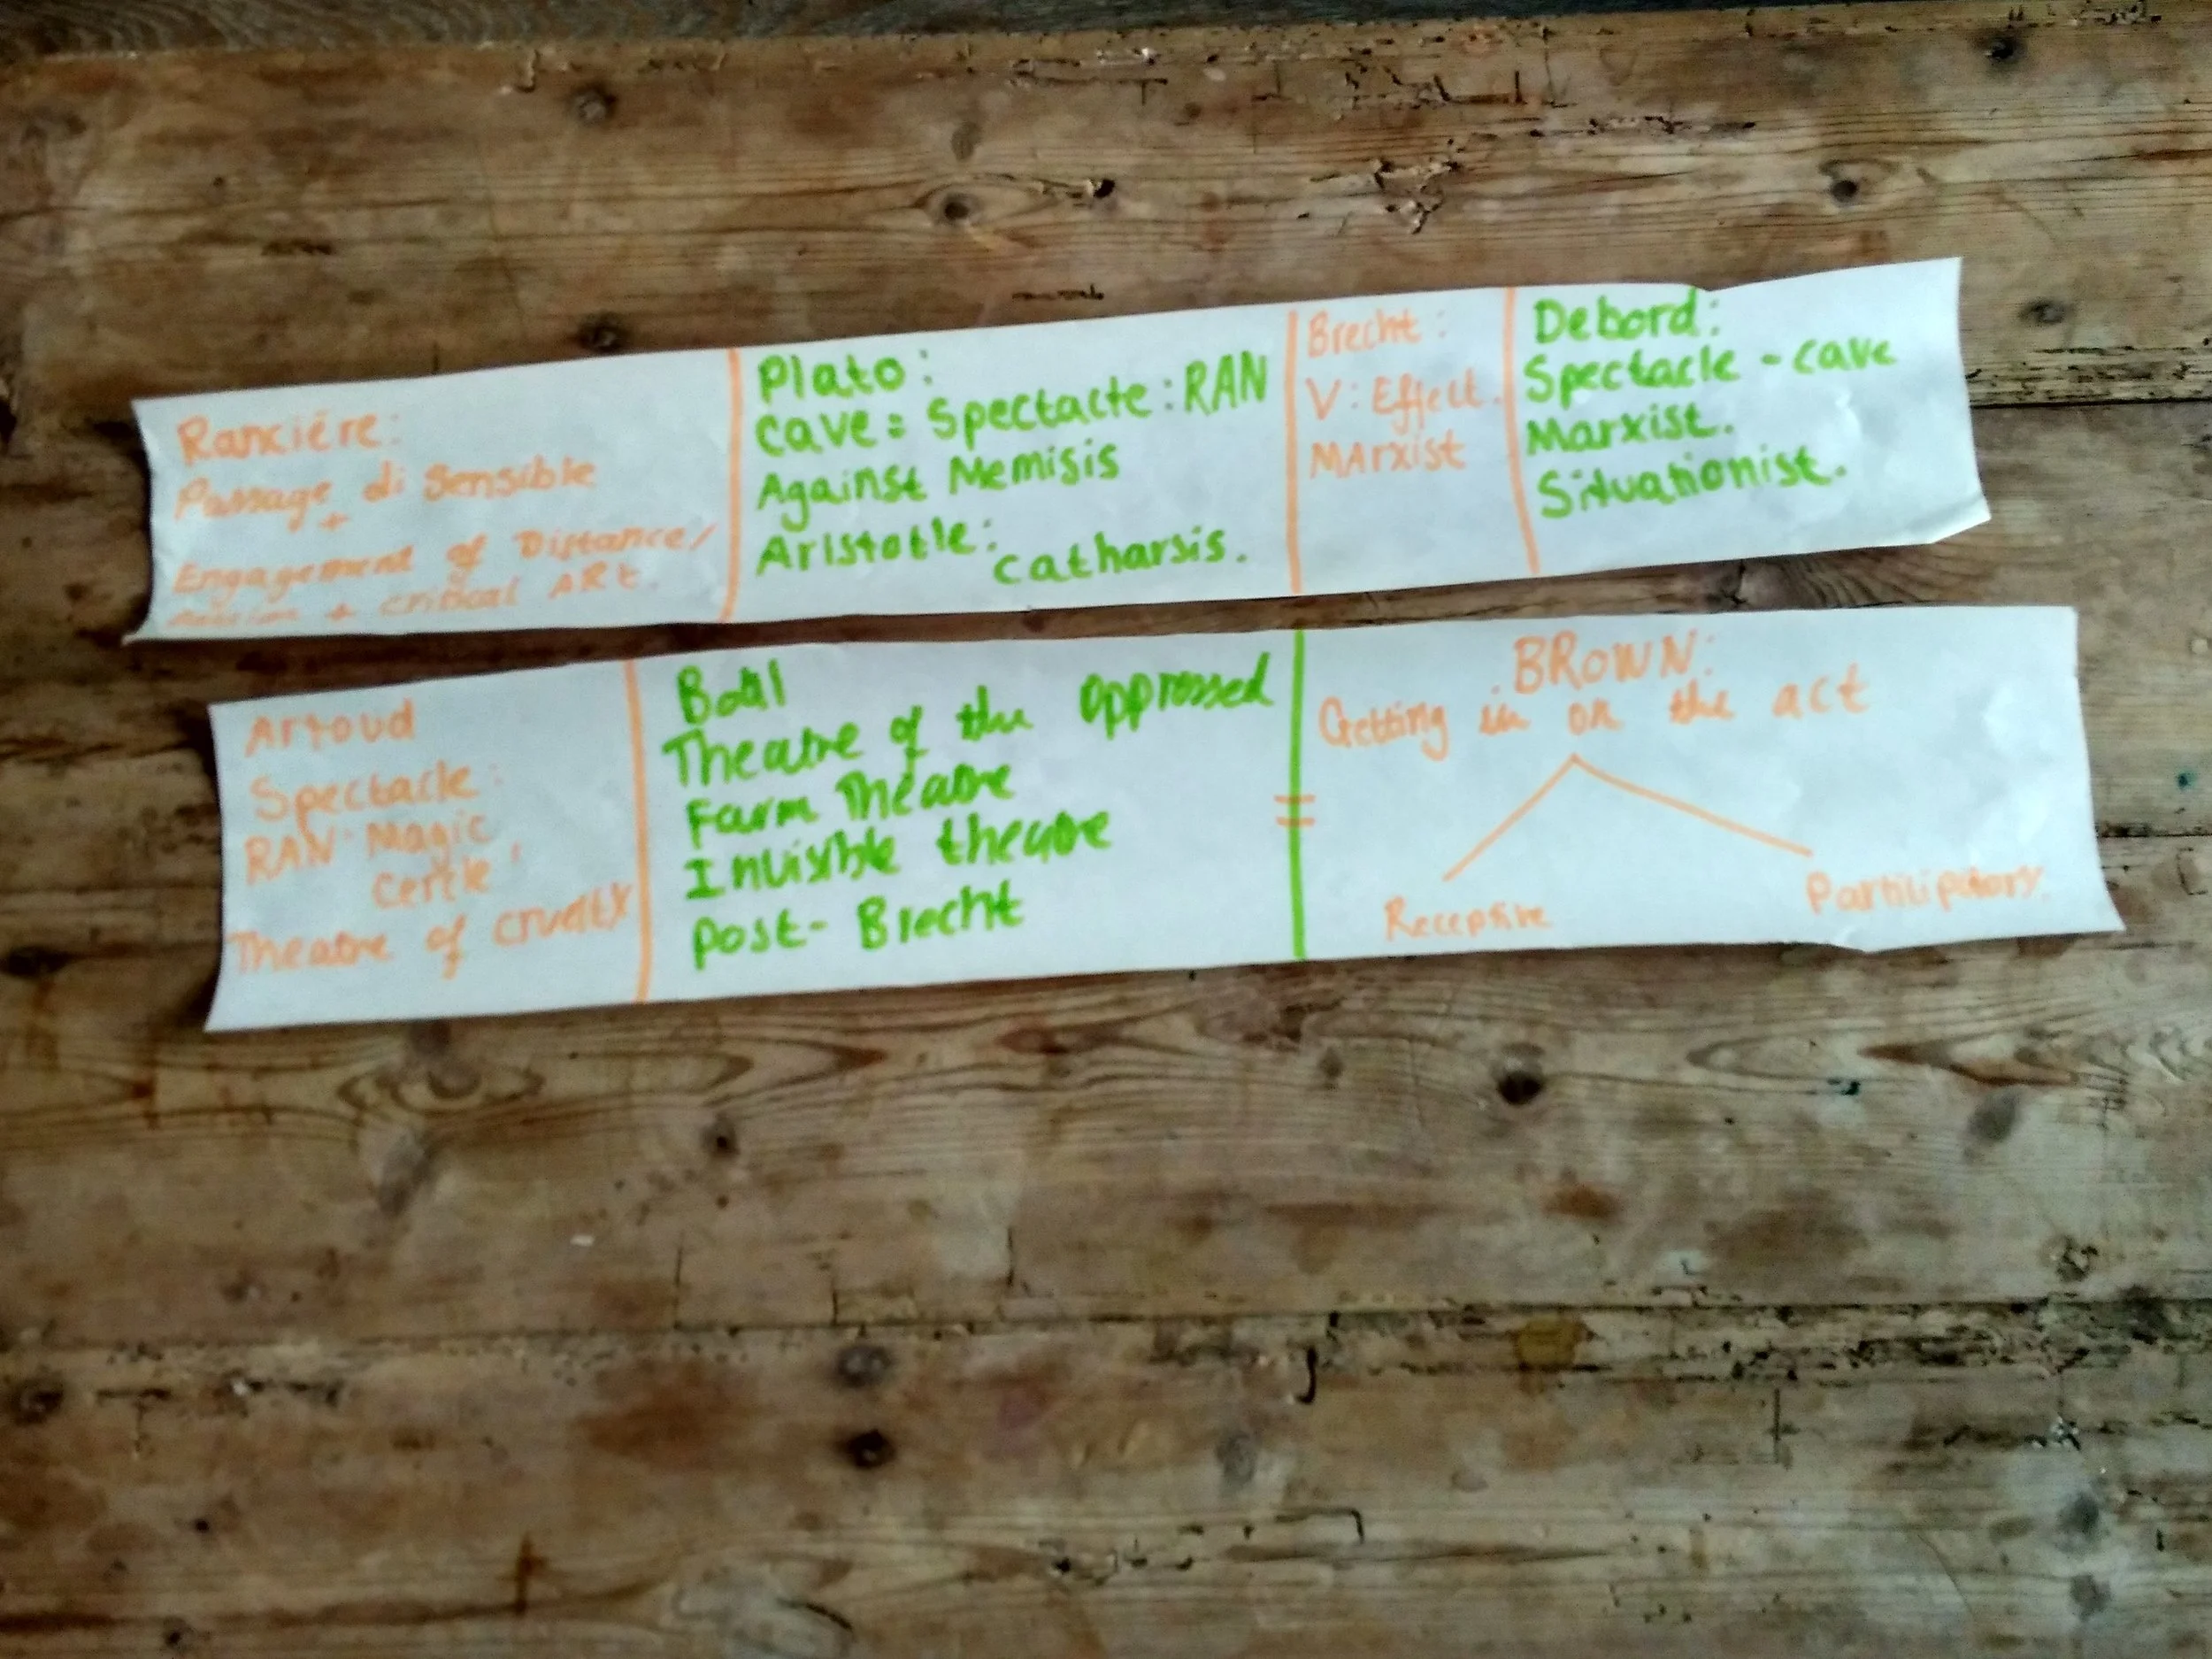 Ranciére:
Passage di Sensible
+
Engagement of Distance/
+ critical ARt.
Plato:
cave = Spectacte: RAN
Against Memisis
Aristotle:
catharsis.
Brecht:
V: Effect.
MArxist
Debord:
Spectacle - cave
Marxist.
Situationist.
Artoud
Spectacle:
RAN: Magic
Cercle,
Theatre of cruelty
Boal
Theatre of the oppressed
Farm Theatre
Invisible theatre
Post- Brecht
BROWN:
Getting in on the act
Receptive
Participatory.